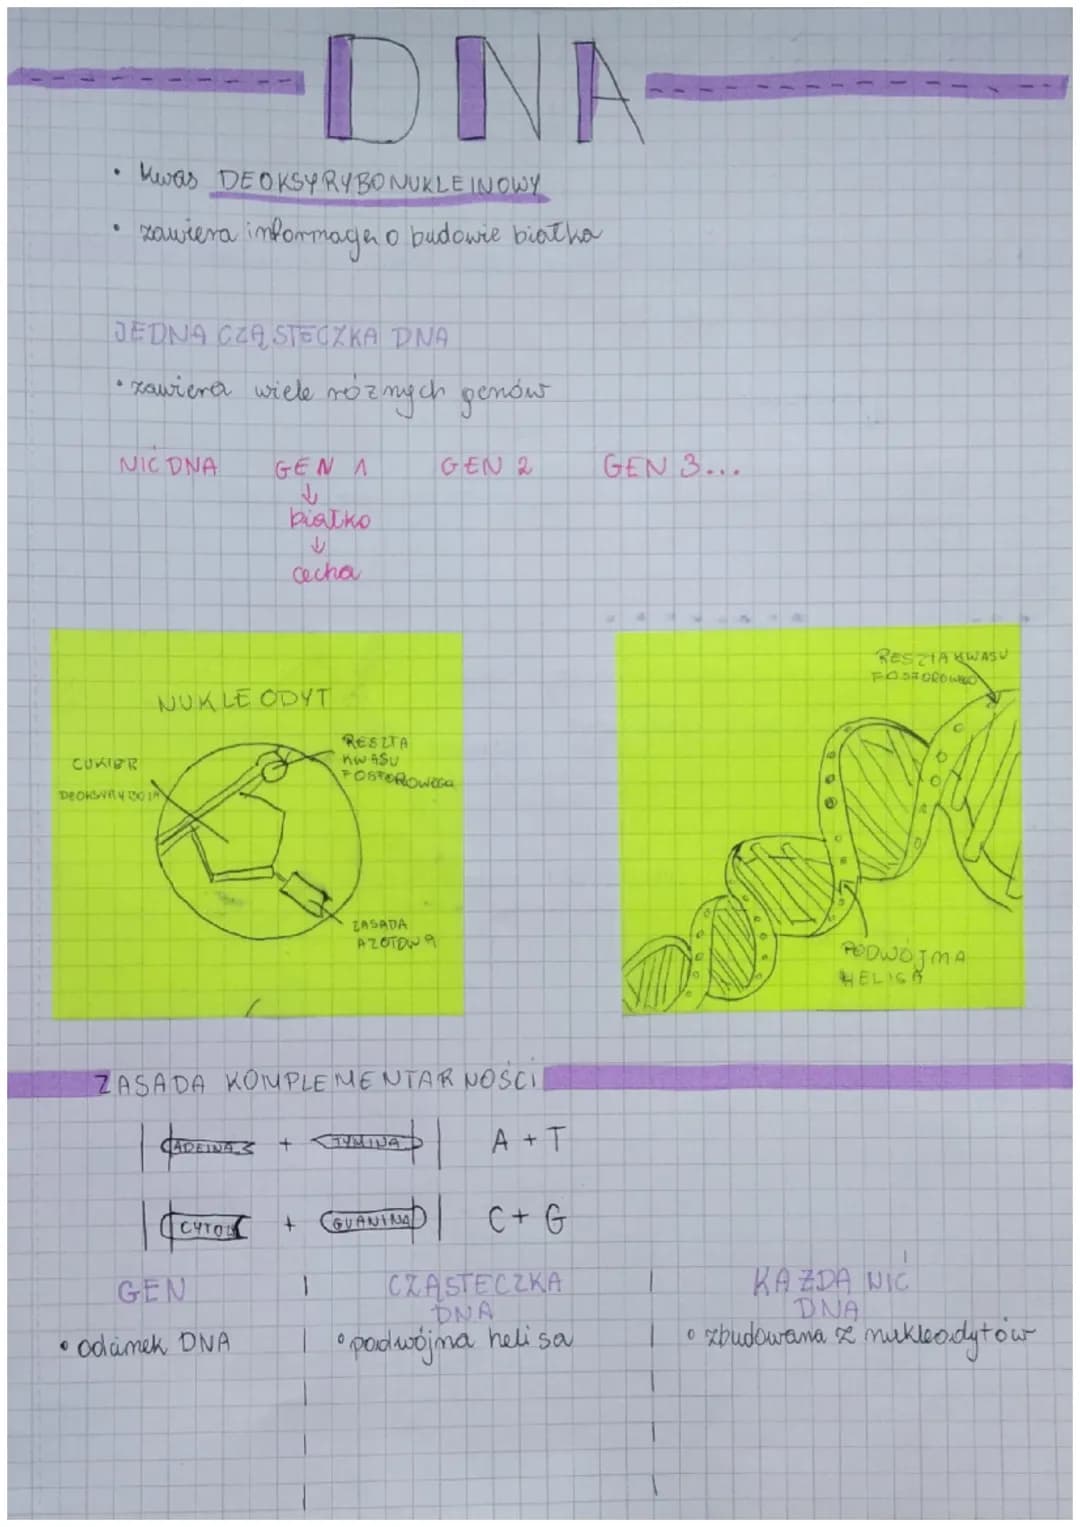 DNA
• kwas DEOKSYRYBONUKLEINOWY
• zawiera informację o budowie białka
JEDNA CZĄSTECZKA DNA
• zawiera wiele różnych genów
NIĆ DNA GEN 1 GEN 2 GEN 3...
↓
białko
↓
cecha
NUKLEODYT
CUKIER
DEOKSYRYBOZA
RESZTA
KWASU
FOSFOROWEGO
ZASADA
AZOTOWA
RESZTA KWASU
FOSFOROWEGO
PODWÓJMA
HELISA
ZASADA KOMPLEMENTARNOŚCI
ADEINA + TYMINA A + T
+ GUANINA C + G
GEN
• odcinek DNA
CZĄSTECZKA
DNA
• podwójna helisa
KAŻDA NIĆ
DNA
• zbudowana z nukleodytów